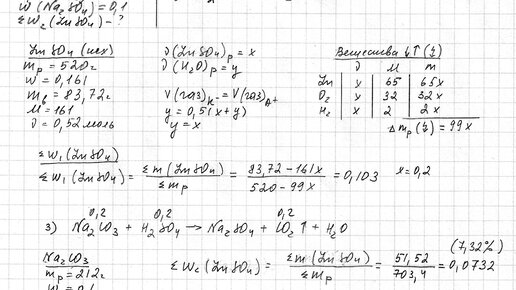 W (Na₂SO₄) = 0,1
ΣW₂ (ZnSO₄) - ?
ZnSO₄ (исх)
mр = 520г
W = 0,161
mв = 83,72г
M = 161
ν = 0,52 моль
ν (ZnSO₄)р = x
ν (H₂O)р = y
V(газ)к = V(газ)А
y = 0,5(x + y)
y = x
Вещества ↓↑ (г)
ν M m
Zn x 65 65x
O₂ x 32 32x
H₂ x 2 2x
Δmр(г) = 99x
ΣW₁ (ZnSO₄)
ΣW₁ (ZnSO₄) = Σm (ZnSO₄) / Σmр = 83,72 - 161x / 520 - 99x = 0,103 x = 0,2
0,2 0,2 0,2
3) Na₂CO₃ + H₂SO₄ → Na₂SO₄ + CO₂↑ + H₂O
Na₂CO₃
mр = 212г
W = 0,1
ΣW₂ (ZnSO₄) = Σm (ZnSO₄) / Σmр = 51,52 / 703,4 = 0,0732
(7,32%)